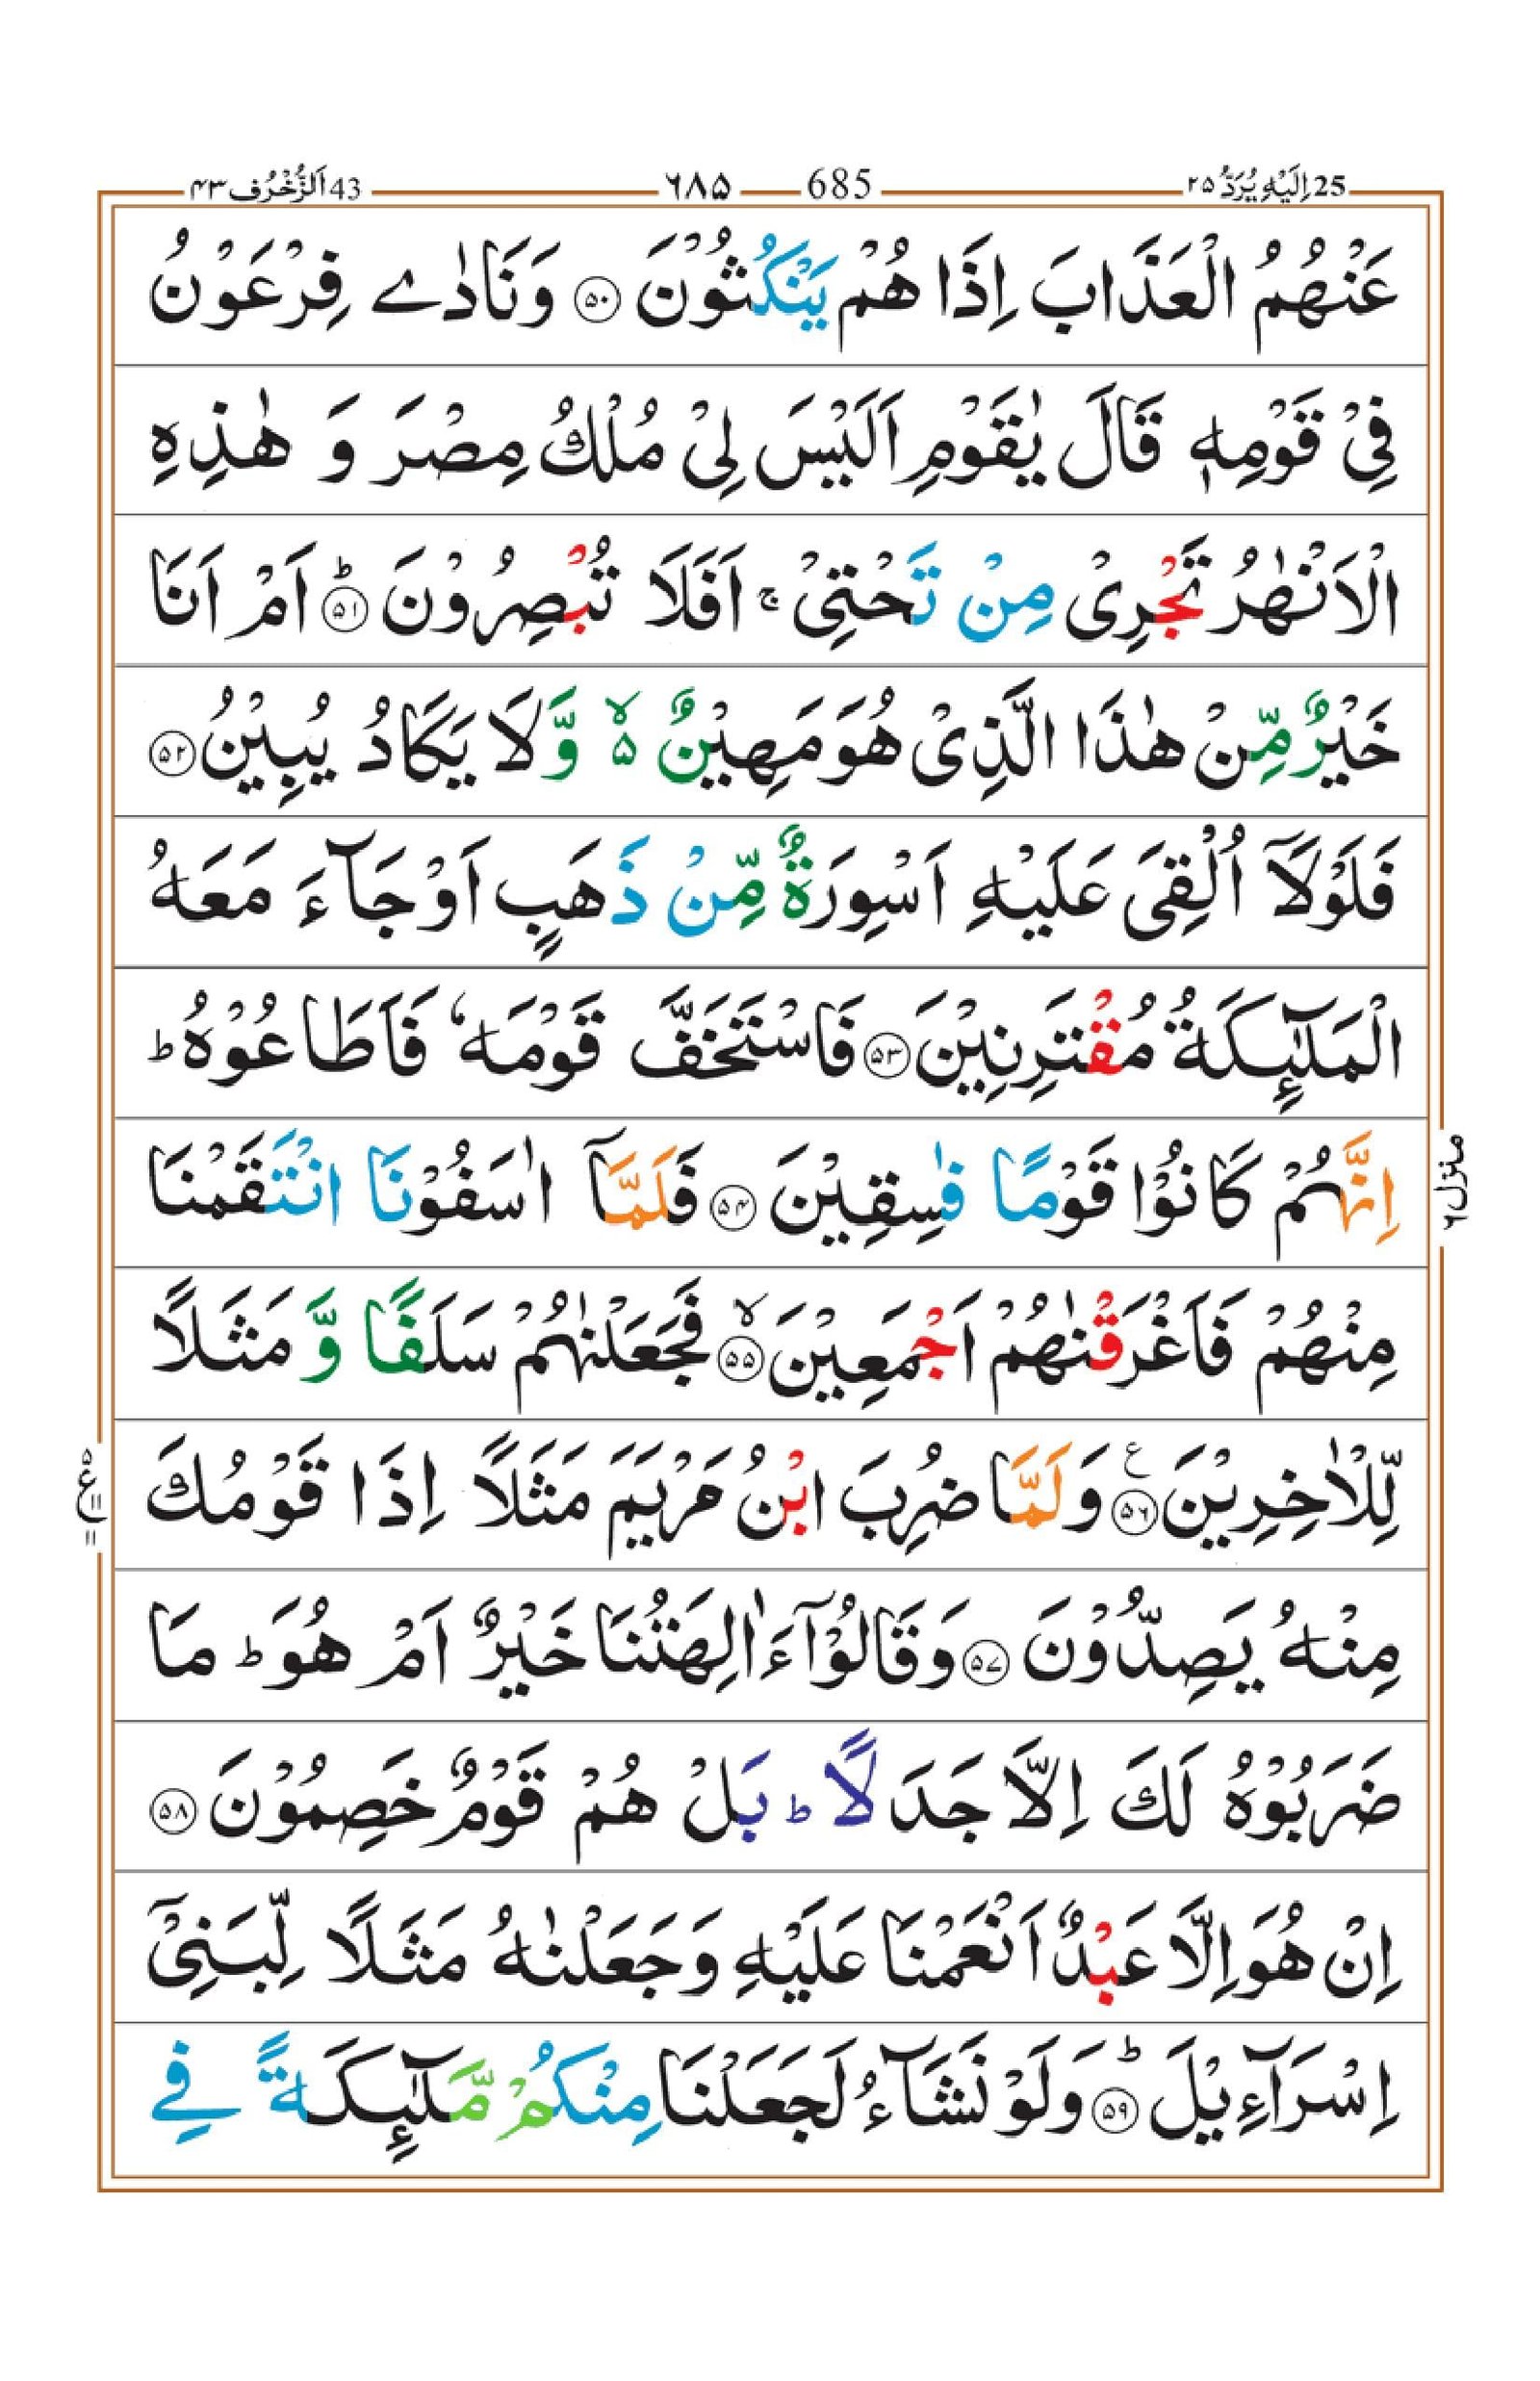 25 اِلَيْهِ يُرَدُّ ۲۵ 685 ٦٨٥ 43 اَلزُّخْرُف ۴۳
عَنْهُمُ الْعَذَابَ اِذَا هُمْ يَنْكُثُوْنَ ۝۵۰ وَنَادٰے فِرْعَوْنُ
فِیْ قَوْمِهٖ قَالَ يٰقَوْمِ اَلَيْسَ لِیْ مُلْكُ مِصْرَ وَ هٰذِهِ
الْاَنْهٰرُ تَجْرِیْ مِنْ تَحْتِیْ ۚ اَفَلَا تُبْصِرُوْنَ ؕ۝۵۱ اَمْ اَنَا
خَيْرٌ مِّنْ هٰذَا الَّذِیْ هُوَ مَهِيْنٌ ۵ۙ وَّلَا يَكَادُ يُبِيْنُ ۝۵۲
فَلَوْلَاۤ اُلْقِیَ عَلَيْهِ اَسْوِرَةٌ مِّنْ ذَهَبٍ اَوْ جَآءَ مَعَهُ
الْمَلٰٓئِكَةُ مُقْتَرِنِيْنَ ۝۵۳ فَاسْتَخَفَّ قَوْمَهٗ فَاَطَاعُوْهُ ؕ
اِنَّهُمْ كَانُوْا قَوْمًا فٰسِقِيْنَ ۝۵۴ فَلَمَّاۤ اٰسَفُوْنَا انْتَقَمْنَا
مِنْهُمْ فَاَغْرَقْنٰهُمْ اَجْمَعِيْنَ ۙ۝۵۵ فَجَعَلْنٰهُمْ سَلَفًا وَّ مَثَلًا
لِّلْاٰخِرِيْنَ ۝۵۶ ع وَلَمَّا ضُرِبَ ابْنُ مَرْيَمَ مَثَلًا اِذَا قَوْمُكَ
مِنْهُ يَصِدُّوْنَ ۝۵۷ وَقَالُوْۤا ءَاٰلِهَتُنَا خَيْرٌ اَمْ هُوَ ؕ مَا
ضَرَبُوْهُ لَكَ اِلَّا جَدَلًا ؕ بَلْ هُمْ قَوْمٌ خَصِمُوْنَ ۝۵۸
اِنْ هُوَ اِلَّا عَبْدٌ اَنْعَمْنَا عَلَيْهِ وَجَعَلْنٰهُ مَثَلًا لِّبَنِیْۤ
اِسْرَآءِيْلَ ؕ۝۵۹ وَلَوْ نَشَآءُ لَجَعَلْنَا مِنْكُمْ مَّلٰٓئِكَةً فِے
منزل ٦
ع ۵ ۱۱ ۱۱